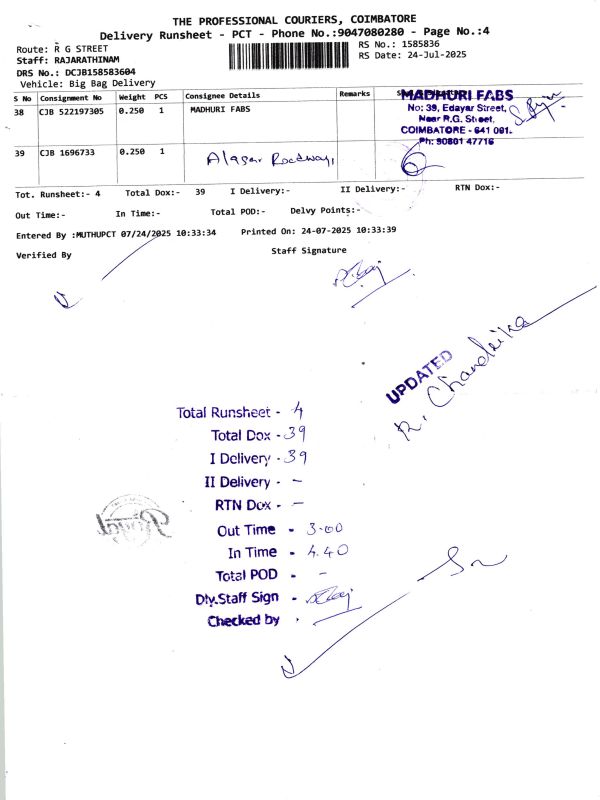 THE PROFESSIONAL COURIERS, COIMBATORE
Delivery Runsheet - PCT - Phone No.:9047080280 - Page No.:4
Route: R G STREET
RS No.: 1585836
Staff: RAJARATHINAM
RS Date: 24-Jul-2025
DRS No.: DCJB158583604
Vehicle: Big Bag Delivery
S No Consignment No Weight PCS Consignee Details Remarks
38 CJB 522197305 0.250 1 MADHURI FABS
MADHURI FABS
No: 39, Edayar Street,
Near R.G. Street,
COIMBATORE - 641 001.
Ph: 90801 47716
39 CJB 1696733 0.250 1 Alagar Roadways
Tot. Runsheet:- 4 Total Dox:- 39 I Delivery:- II Delivery:- RTN Dox:-
Out Time:- In Time:- Total POD:- Delvy Points:-
Entered By :MUTHUPCT 07/24/2025 10:33:34 Printed On: 24-07-2025 10:33:39
Verified By Staff Signature
UPDATED
R. Chandrika
Total Runsheet - 4
Total Dox - 39
I Delivery - 39
II Delivery - -
RTN Dox - -
Out Time - 3.00
In Time - 4.40
Total POD - -
Dly.Staff Sign -
Checked by